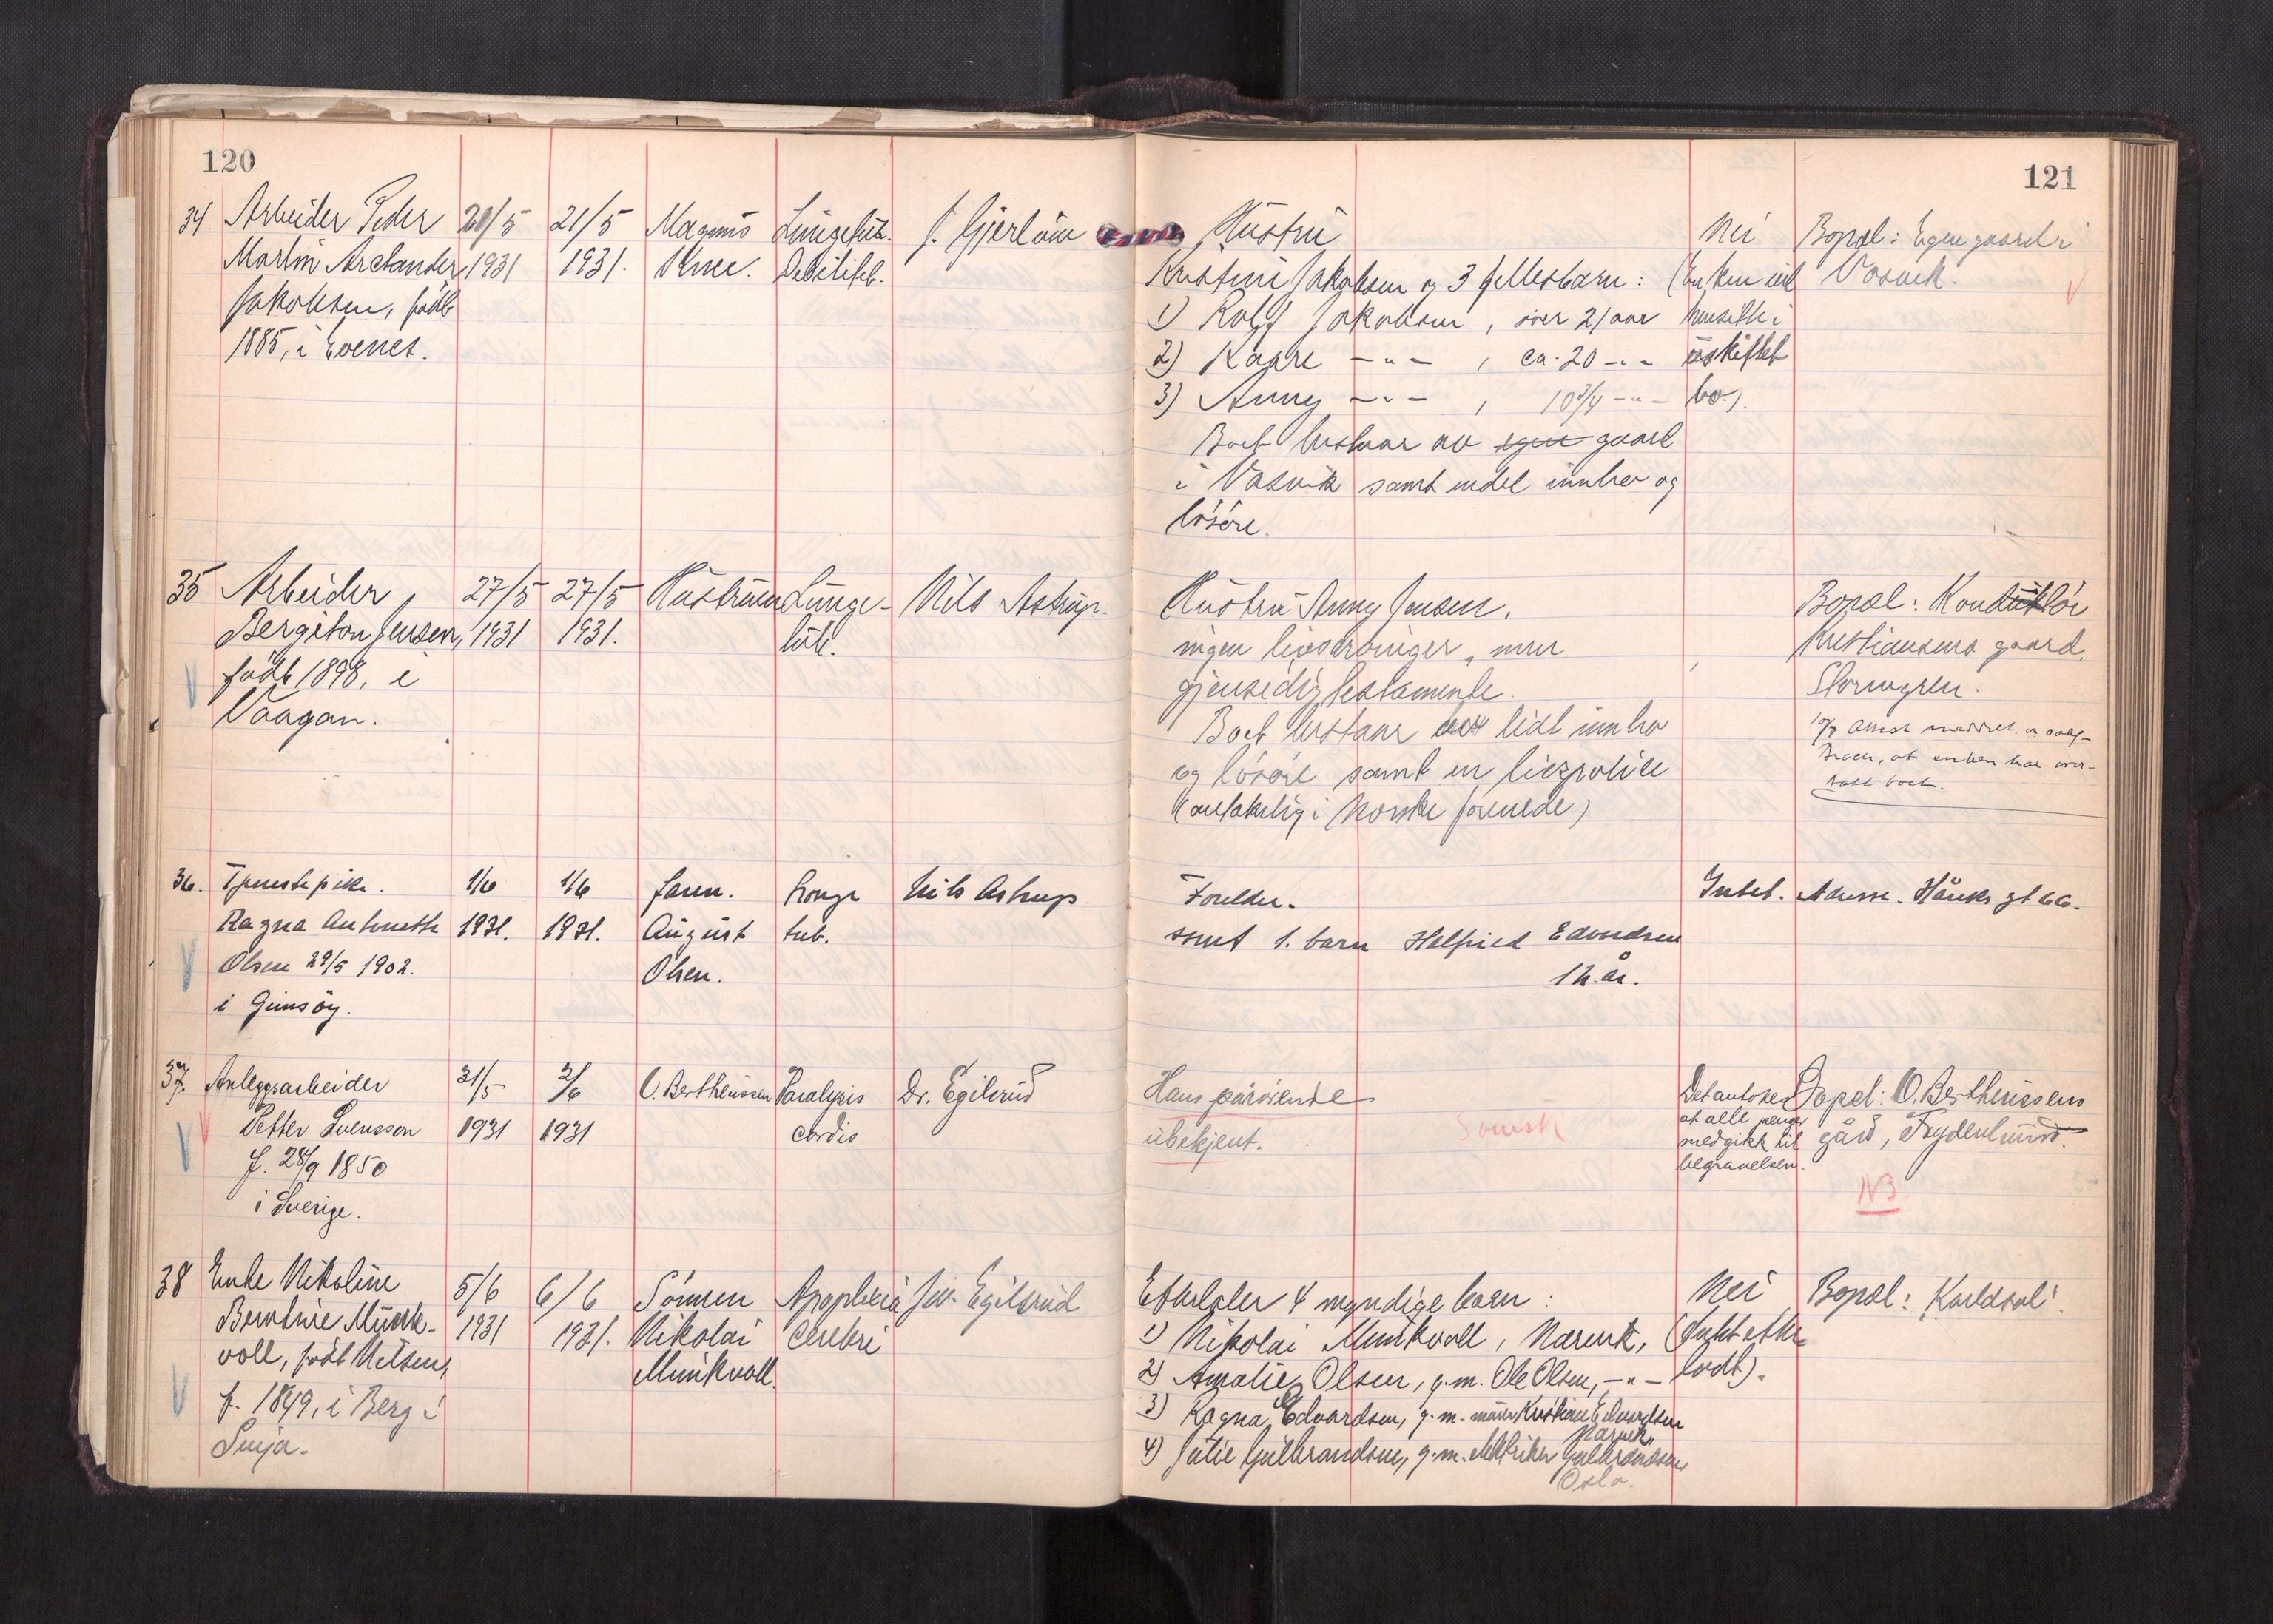 120
34. Arbeider Peder
Martin Arctander
Jakobsen, född
1885, i Evenes.
20/5
1931
21/5
1931.
Magnus
Lungetub.
Debilitet.
J. Gjerløw
35 Arbeider
Bergiton Jensen,
född 1898, i
Vaagan.
27/5
1931
27/5
1931.
Hustruen
Lunge-
tub.
Nils Astrup.
36. Tjenestepike.
Ragna Antonette
Olsen 29/5 1902.
i Gimsöy.
1/6
1931.
1/6
1931.
faren.
August
Olsen.
Lunge
tub.
Nils Astrup
37. Anleggsarbeider
Petter Svensson
f. 28/9 1850
i Sverige.
31/5
1931
2/6
1931
O. Bertheussen
Paralysis
cordis
Dr. Egilsrud
38 Enke Nikoline
Berntine Munk-
voll, född Nilsen,
f. 1849, i Berg i
Senja.
5/6
1931
6/6
1931.
Sönnen
Nikolai
Munkvoll.
Apoplexia
Cerebri
Egilsrud
121
Hustru
Kristine Jakobsen og 3 fellesbarn:
1) Rolf Jakobsen, över 21 aar
2) Kaare -"-, ca. 20 -"-
3) Anny -"-, 10 3/4 -"-
Boet bestaar av egen gaard
i Vasvik samt endel innbo og
lösöre.
Nei
(Enken vil
hensitte i
uskiftet
bo.)
Bopæl: Egen gaard i
Vasvik.
Hustru Anny Jensen.
ingen livsarvinger, men
gjensedig testamente.
Boet bestaar av lidt innbo
og lösöre samt en livspolice
(antakelig i Norske forenede)
Bopæl: Konduktör
Kristiansens gaard,
Stornygren.
at enken har over-
tatt boet.
Foreldre.
samt 1. barn Halfrid Edvardsen
12 år.
Intet.
Adresse. Håriks gt 66.
Hans pårörende
ubekjent.
Svensk
Det antokes
at alle penger
medgikk til
begravelsen.
Bopel: O. Bertheussens
gård, Frydenlund.
NB
Efterlater 4 myndige barn:
1) Nikolai Munkvoll, Narvik,
2) Amalie Olsen, g.m. Ole Olsen, -"-
3) Ragna Edvardsen, g.m. murer Kristian Edvardsen
Narvik
4) Julie Gulbrandsen, g.m. elektriker Gulbrandsen
Oslo.
Nei
(Intet efter-
ladt).
Bopæl: Karldsal.